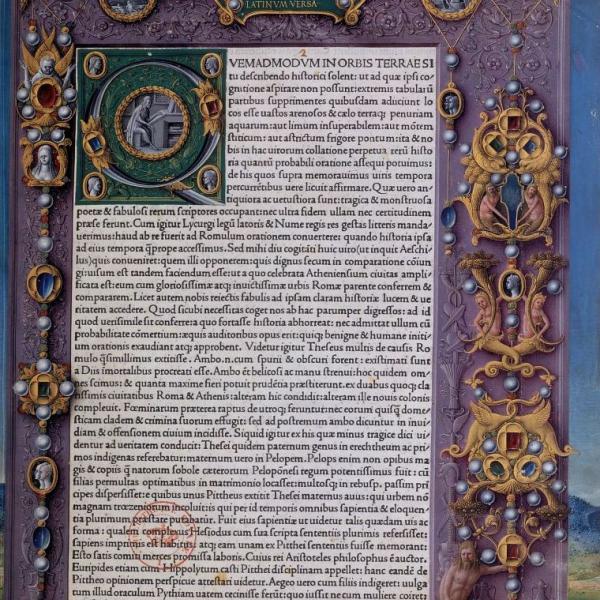 LATINVM VERSA
QVEMADMODVM IN ORBIS TERRAE SI
tu describendo historici solent: ut ad quæ ipsi co/
gnitione aspirare non possunt: extremis tabularũ
partibus supprimentes quibusdam adiiciunt lo
cos esse uastos arenosos & cælo terraq; penuriam
aquarum: aut limum insuperabilem: aut mõtem
stiticum: aut astrictum frigore pontum: ita & no
bis in hac uirorum collatione perpetua rerũ histo
ria quantũ probabili oratione assequi potuimus:
de his quos supra memorauimus uiris tempora
percurrẽtibus uere licuit affirmare. Quæ uero an/
tiquiora ac uetustiora sunt: tragica & monstruosa
poetæ & fabulosi rerum scriptores occupant: nec ultra fidem ullam nec certitudinem
præ se ferunt. Cum igitur Lycurgi legũ latoris & Nume regis res gestas litteris manda
uerimus: haud ab re fuerit ad Romulum orationem conuertere: quando historia ipsa
ad eius tempora q̃prope accessimus. Sed mihi diu cogitãti huic uiro (ut inquit Aeschi
lus) quis conueniret: quem illi opponerem: quis dignus secum in comparatione cõiun
gi: uisum est tandem faciendum esse: ut a quo celebrata Atheniensum ciuitas ampli/
ficata est: eum cum gloriosissimæ atq; inuictissimæ urbis Romæ parente conferrem &
compararem. Licet autem nobis reiectis fabulis ad ipsam claram historiæ lucem & ue
ritatem accedere. Quod sicubi necessitas coget nos ab hac parumper digressos: ad id
quod uerisimile sit conferre: a quo fortasse historia abhorreat: nec admittat ullum cũ
probabilitate cõmertium: æquis auditoribus opus erit: quiq; benigne & humane initi/
um orationis exaudiant atq; approbent. Videtur igitur Theseus multis de causis Ro
mulo q̃simillimus extitisse. Ambo .n. cum spurii & obscuri forent: existimati sunt
a Diis imortalibus procreati esse. Ambo ẽt bellicosi ac manu strenui: hoc quidem om
nes scimus: & quanta maxime fieri potuit prudẽtia præstiterunt. ex duabus quoq; cla
rissimis ciuitatibus Roma & Athenis: alteram hic condidit: alteram ille nouis colonis
compleuit. Fœminarum præterea raptus de utroq; feruntur: nec eorum quisq̃ dome/
sticam cladem & crimina suorum effugit: sed ad postremum ambo dicuntur in inui/
diam & offensionem ciuium incidisse. Siquid igitur ex his quæ minus tragice dici ui
dentur ad ueritatem conducit: Thesei quidem paternum genus in erectheum ac pri
nos indigenas referebatur: maternum uero in Pelopem. Pelops enim non opibus ma
gis & copiis q̃ natorum sobole cæterorum Pelopõnesi regum potentissimus fuit: cũ
filias permultas optimatibus in matrimonio locasset: multosq; in rebusp. passim prĩ
cipes dispersisset: e quibus unus Pittheus extitit Thesei maternus auus: qui urbem nõ
magnam trœzeniorum incoluit: uir qui per id temporis omnibus sapientia & eloquen
tia plurimum præstare putabatur. Fuit eius sapientiæ ut uidetur talis quædam uis ac
forma: qualem complexus Hesiodus cum sua scripta sententiis plurimis refersisset:
sapiens imprimis est habitus: atq; eam unam ex Pitthei sententiis fuisse memorant:
Esto satis constans merces promissa laboris. Cuius rei Aristoteles philosophus ẽ auctor.
Euripides etiam cum Hippolytum casti Pitthei disciplinam appellet: hanc eandẽ de
Pittheo opinionem perspicue attestari uidetur. Aegeo uero cum filiis indigeret: uulga
tum illud oraculum Pythiam uatem cecinisse ferũt: quo iussit ne cum muliere coiret